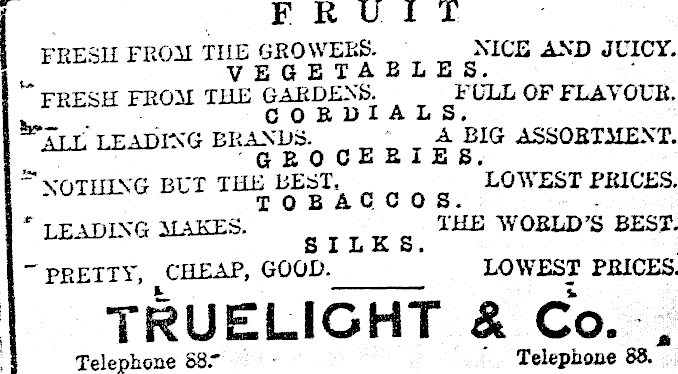 FRUIT
FRESH FROM THE GROWERS. NICE AND JUICY.
VEGETABLES.
FRESH FROM THE GARDENS. FULL OF FLAVOUR.
CORDIALS.
ALL LEADING BRANDS. A BIG ASSORTMENT.
GROCERIES.
NOTHING BUT THE BEST. LOWEST PRICES.
TOBACCOS.
LEADING MAKES. THE WORLD'S BEST.
SILKS.
PRETTY, CHEAP, GOOD. LOWEST PRICES.
TRUELIGHT & Co.
Telephone 88. Telephone 88.